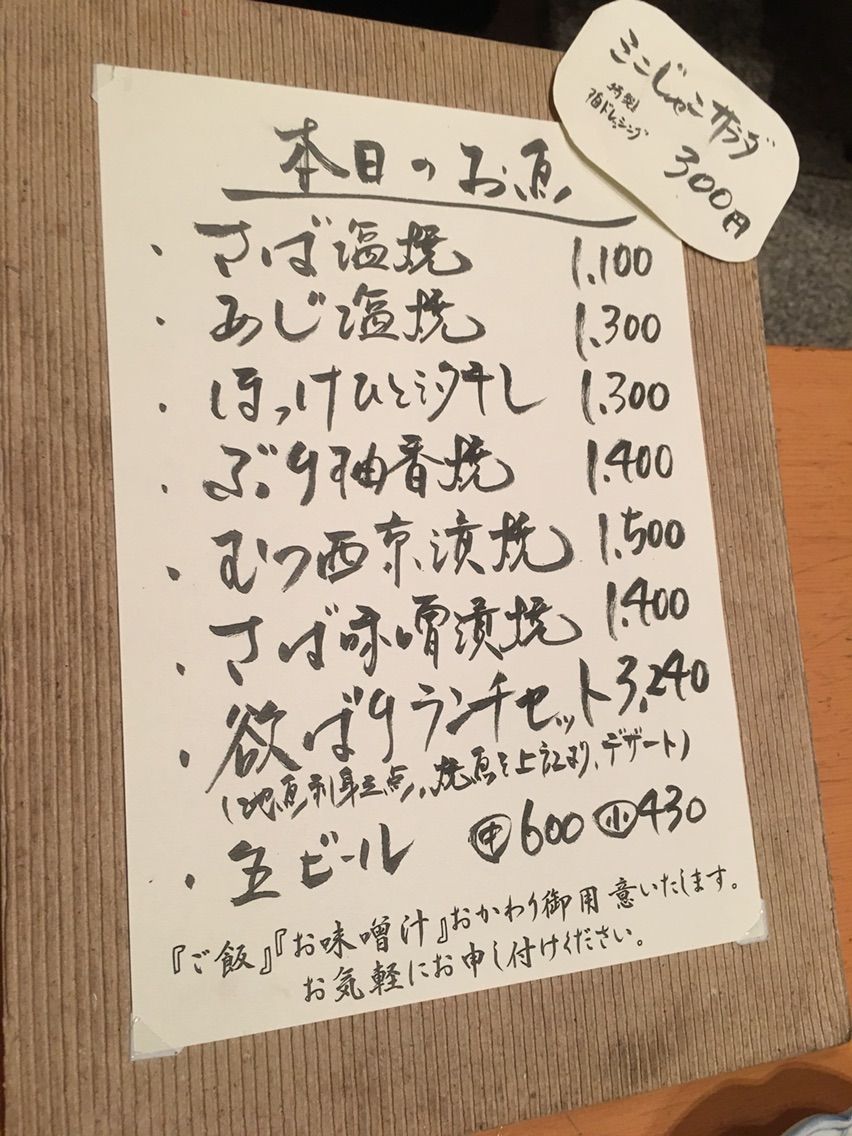 本日のお魚
・さば塩焼 1,100
・あじ塩焼 1,300
・ほっけひと汐干し 1,300
・ぶり柚香焼 1,400
・むつ西京漬焼 1,500
・さば味噌漬焼 1,400
・欲ばりランチセット 3,240
(地魚刺身三点、焼魚を上記より、デザート)
・生ビール ㊥600 ㊙430
『ご飯』『お味噌汁』おかわり御用意いたします。
お気軽にお申し付けください。
じゃこサラダ
特製
ドレッシング
300円